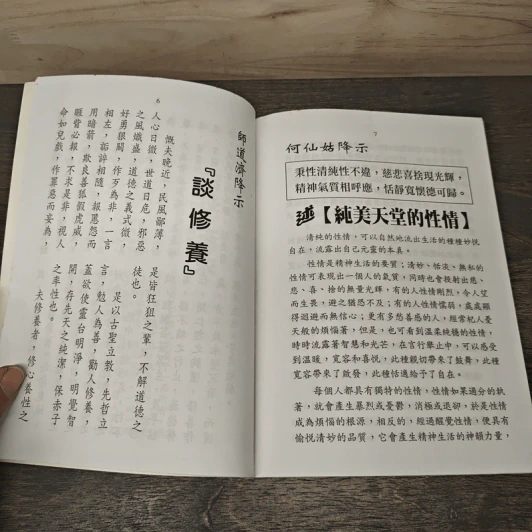 6
師道濟降示
『談修養』
慨夫晚近，民風鄙薄，
人心日微，世道日危，邪惡
之風熾盛，道德之義式微，
好勇狠鬪，作歹為非，一言
相左，詬誶相隨，報恩怨而
用暗箭，欺良善狐假虎威，
睚眥必報，不求是非，視人
命如兒戲，作罪惡而妄為，
是皆狂狙之輩，不解道德之
徒也。
是以古聖立教，先哲立
言，勉人為善，勸人修養，
蓋欲使靈台明淨，明覺智
開，存先天之純潔，保赤子
之率性也。
夫修養者，修心養性之
7
何仙姑降示
秉性清純性不違，慈悲喜捨現光輝，
精神氣質相呼應，恬靜寬懷德可歸。
【純美天堂的性情】
清純的性情，可以自然地流出生活的種種妙悅
自在，流露出自己元靈的本真。
性情是精神生活的要質；清妙、恬淡、無私的
性情可表現出一個人的氣質，同時也會投射出慈、
悲、喜、捨的無量光輝，有的人性情剛烈，令人望
而生畏，避之猶恐不及；有的人性情懦弱，處處顯
得迴避而無信心；更有多愁善感的人，經常杞人憂
天般的煩惱著，但是，也可看到溫柔純樸的性情，
時時流露著智慧和光芒，在言行舉止中，可以感受
到溫暖，寬容和喜悅，此種親切帶來了鼓舞，此種
寬容帶來了啟發，此種恬適給予了自在。
每個人都具有獨特的性情，性情如果過分的執
著，就會產生暴烈或憂鬱，消極或退卻，於是性情
成為煩惱的根源，相反的，經過醒覺性情，使具有
愉悅清妙的品質，它會產生精神生活的神韻力量，